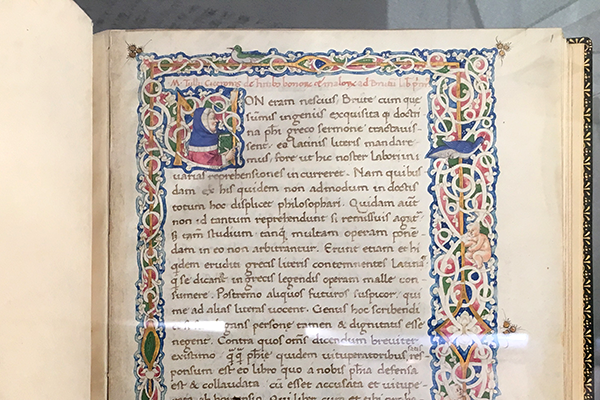 M. Tullii Ciceronis de finibus bonor et malor ad Brutū lib pri
NON eram nescius, Brute cum que
sūmis ingeniis exquisita q̄ doctri
na phi greco sermone tractavis-
sent, ea latinis literis mandare
mus, fore ut hic noster labor in
varias reprehensiones incurreret. Nam quibus
dam ex his quidem non admodum indoctis
totum hoc displicet philosophari. Quidam aut̄
non id tantum reprehendunt si remissius agat̄
Sȝ tam̄ studium tanq̄ multam operam ponē
dam in eo non arbitrantur. Erunt etiam et hi
qdem eruditi grecis literis contemnentes Latinas
q̄ se dicant in grecis legendis operam malle con
sumere. Postremo aliquos futuros suspicor, qui
me ad alias literas vocent. Genus hoc scribendi
persone tamen & dignitatis esse
negent. Contra quos omis dicendum breviter
existimo q̄q̄ phie quidem vituperatoribus satis res
ponsum est eo libro quo a nobis phia defensa
est & collaudata cū esset accusata et vitupe-
rata ab hortensio. Qui liber cum et tibi